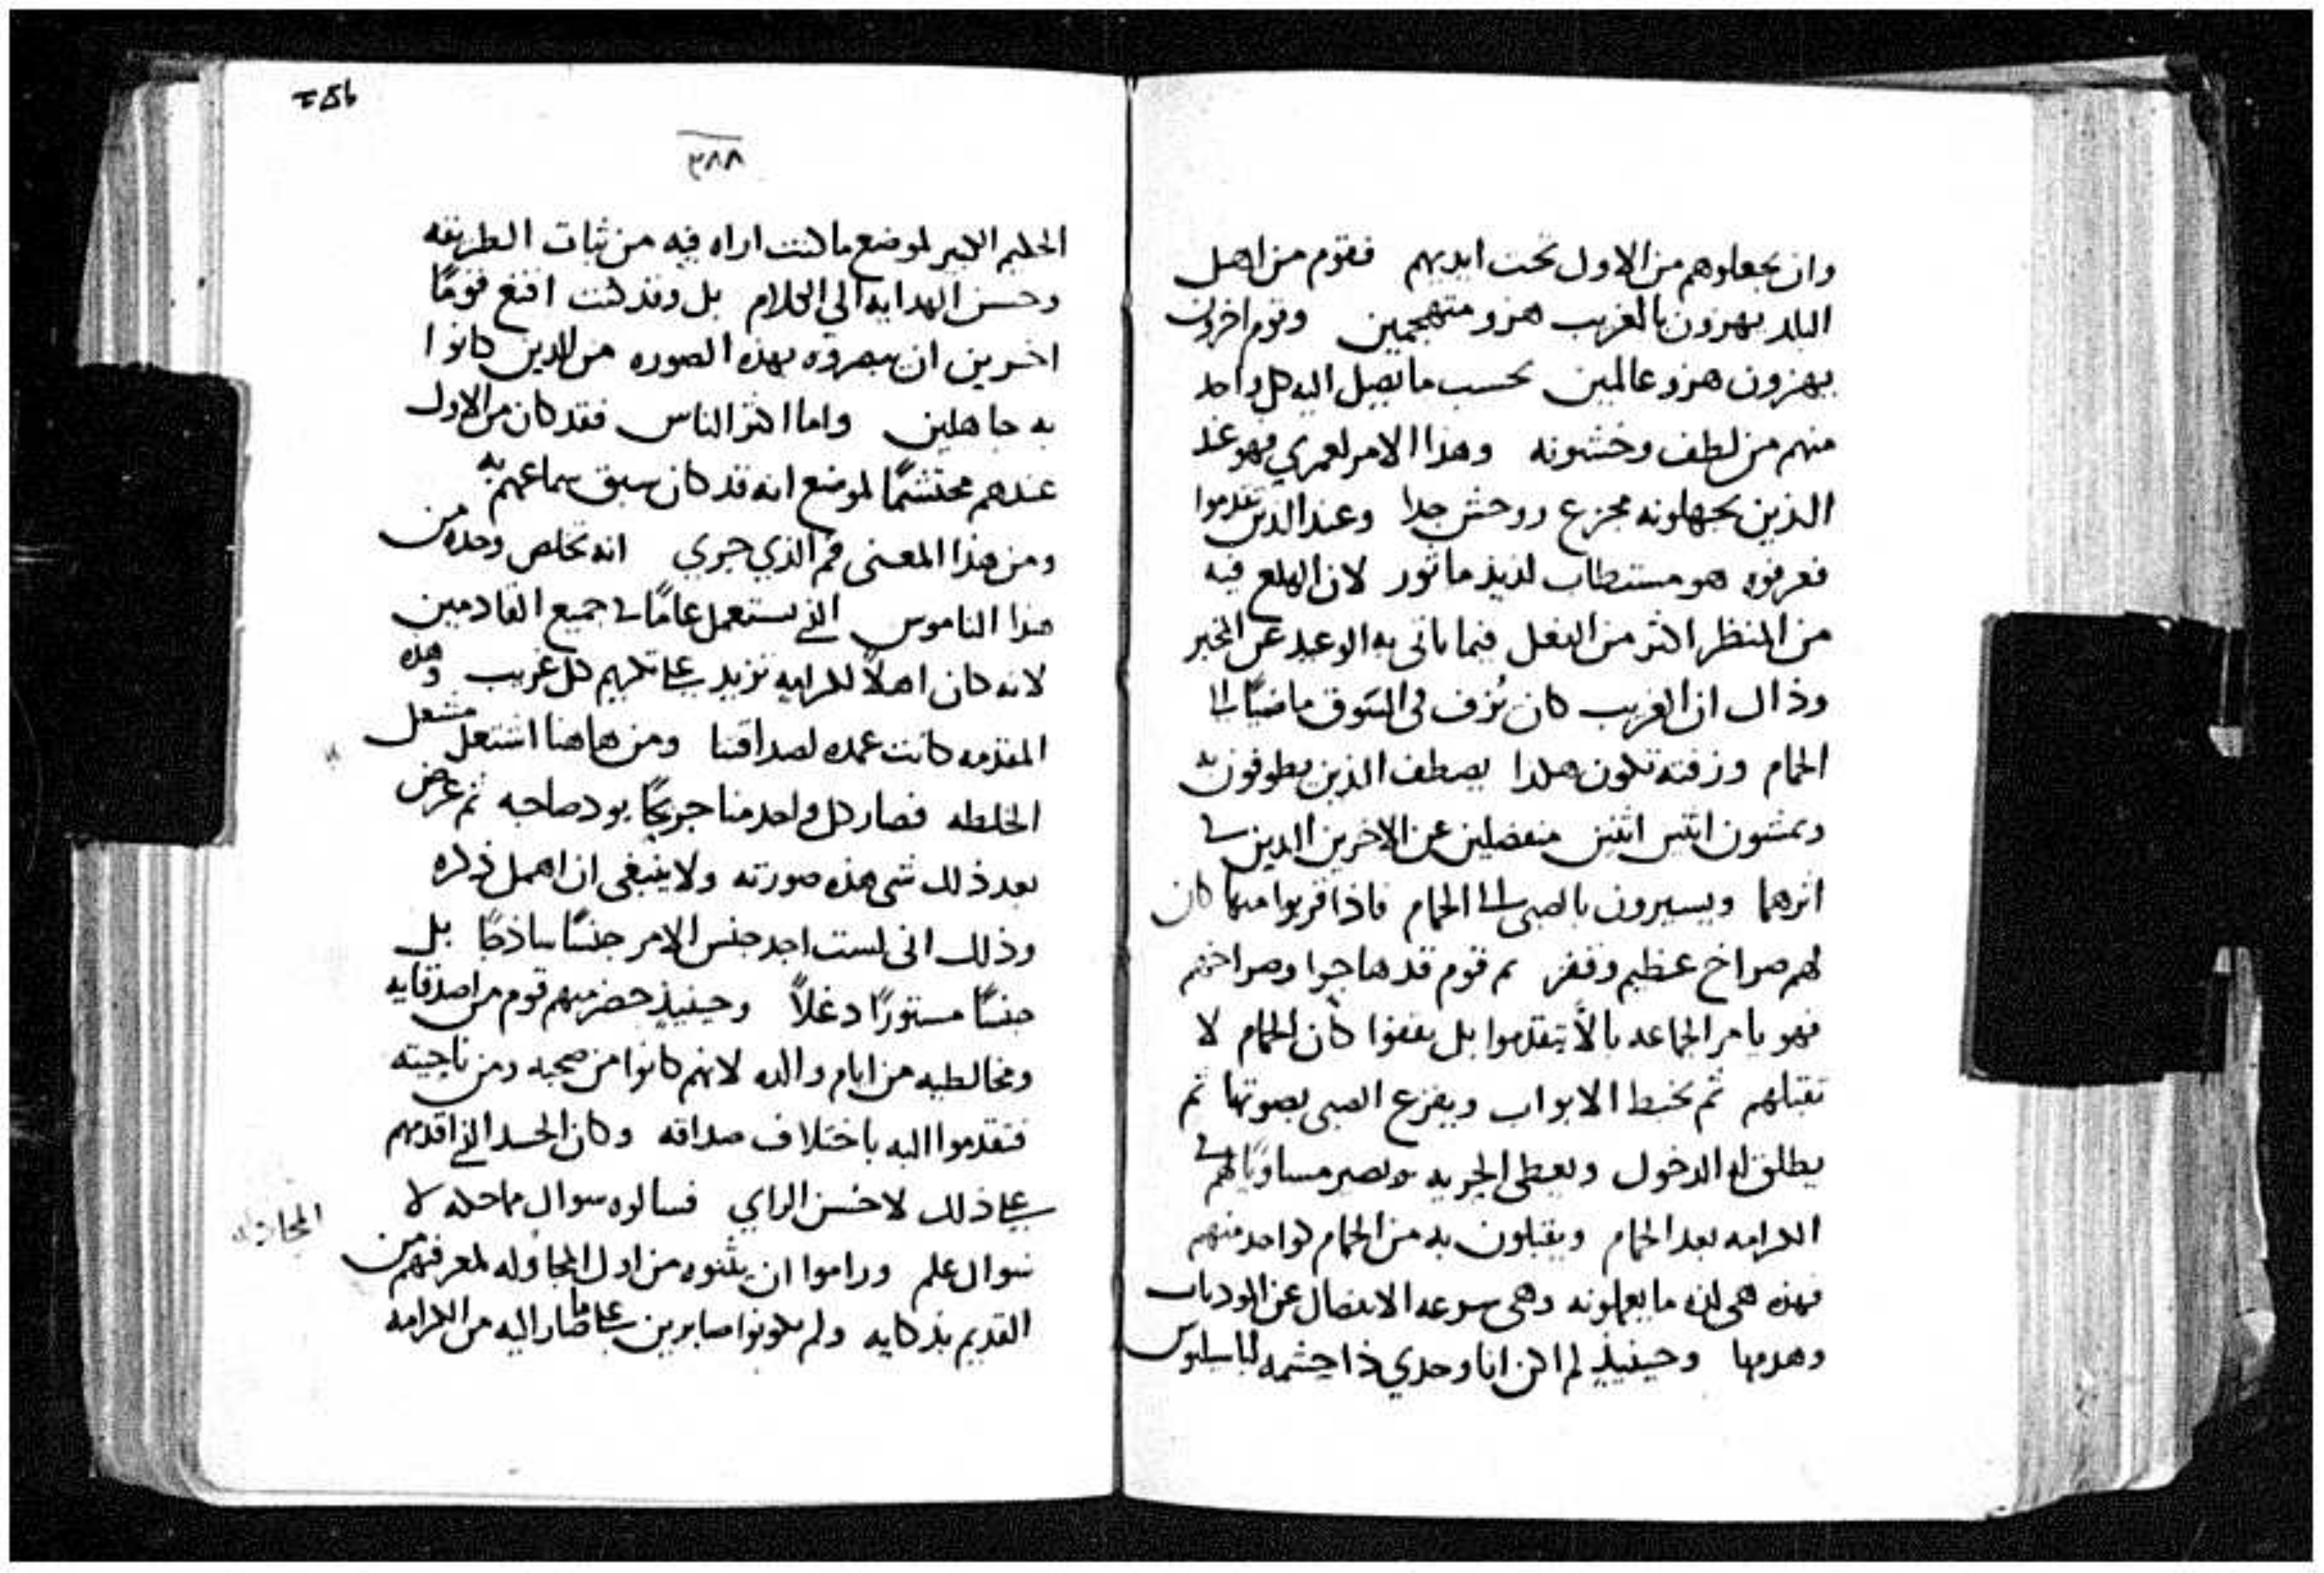 وان يجعلوهم من الاول تحت ايديهم فقوم من اهل
البلد يهزون بالغريب هزو متهجمين وقوم اخرون
يهزون هزو عالمين بحسب ما يصل اليه كل واحد
منهم من لطف وخشونه وهذا الامر لعمري فهو عند
الذين يجهلونه مجزع ووحش جدا وعند الذين تقدموا
فعرفوه هو مستطاب لذيذ ماثور لان الهلع فيه
من المنظر اكثر من الفعل فيما ياتي به الوعيد عن المخبر
وذاك ان الغريب كان يُزف في السوق ماضيًا الى
الحمام وزفته تكون هكذا يصطف الذين يطوفون به
ويمشون اثنين اثنين منفصلين عن الاخرين الذين في
اثرهما ويسيرون بالصبي الى الحمام فاذا قربوا منها كان
لهم صراخ عظيم وقفز قوم قد هاجوا وصراخهم
فهو يامر الجماعه بالّا يتقدموا بل يقفوا كأن الحمام لا
تقبلهم ثم تخبط الابواب ويفزع الصبي بصوتها ثم
يطلق له الدخول ويعطى الحريه ويصير مساويًا لهم في
الكرامه بعد الحمام ويقبلون به من الحمام كواحد منهم
فهذه هي لذه ما يعملونه وهي سرعه الانفصال عن
وهدمها وحينيذٍ لم اكن انا وحدي ذا حشمه لباسليوس
258
٣٨٨
الحكيم الكبير لموضع ما كنت اراه فيه من ثبات الطريقه
وحسن الهدايه الي الكلام بل وقد كنت اقنع قومًا
اخرين ان يبصروه بهذه الصوره من الذين كانوا
به جاهلين واما اكثر الناس فقد كان من الاول
عندهم محتشمًا لموضع انه قد كان سبق سماعهم به
ومن هذا المعنى فم الذي جري انه تخلص وحده من
هذا الناموس الذي يستعمل عامًا في جميع القادمين
لانه كان اهلًا لكرامه تزيد على تكريم كل غريب وهذه
المقدمه كانت عمده لصداقتنا ومن هاهنا اشتعل مشعل
الخلطه فصار كل واحد منا جريحًا بود صاحبه ثم عرض
بعد ذلك شي هذه صورته ولا ينبغي ان اهمل ذكره
وذلك اني لست اجد جنس الامر جنسًا ساذجًا بل
جنسًا مستورًا دغلًا وحينيذٍ حضر منهم قوم من اصدقايه
ومخالطيه من ايام والده لانهم كانوا من صحبه ومن ناحيته
فتقدموا اليه باختلاف صداقه وكان الحسد الذي اقدمهم
على ذلك لا حسن الراي فسالوه سوال مماحله لا
سوال علم وراموا ان يثنوه من اول المجاوله لمعرفتهم من
القديم بذكايه ولم يكونوا صابرين على ما صار اليه من الكرامه